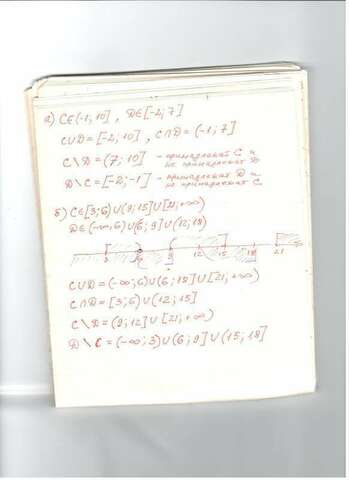 а) C∈(-1; 10] , D∈[-2; 7]
C∪D=[-2; 10] , C∩D=(-1; 7]
C\D=(7; 10] - принадлежит C и не принадлежит D
D\C=[-2; -1] - принадлежит D и не принадлежит C
б) C∈[3; 6)∪(9; 15]∪[21; +∞)
D∈(-∞; 6)∪(6; 9]∪(12; 18)
3 6 9 12 15 18 21
C∪D=(-∞; 6)∪(6; 18]∪[21; +∞)
C∩D=[3; 6)∪(12; 15]
C\D=(9; 12]∪[21; +∞)
D\C=(-∞; 3)∪(6; 9]∪(15; 18]